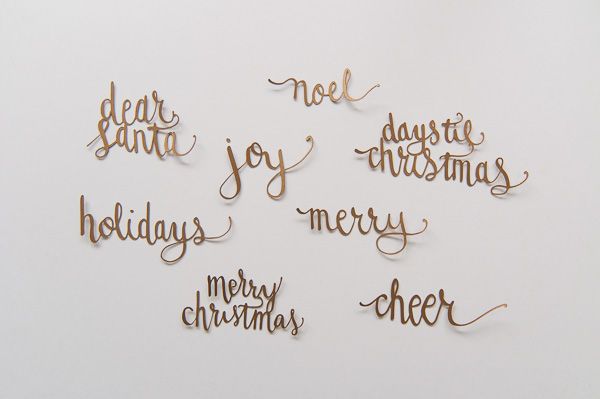 noel
dear
santa
joy
days til
christmas
holidays
merry
merry
christmas
cheer